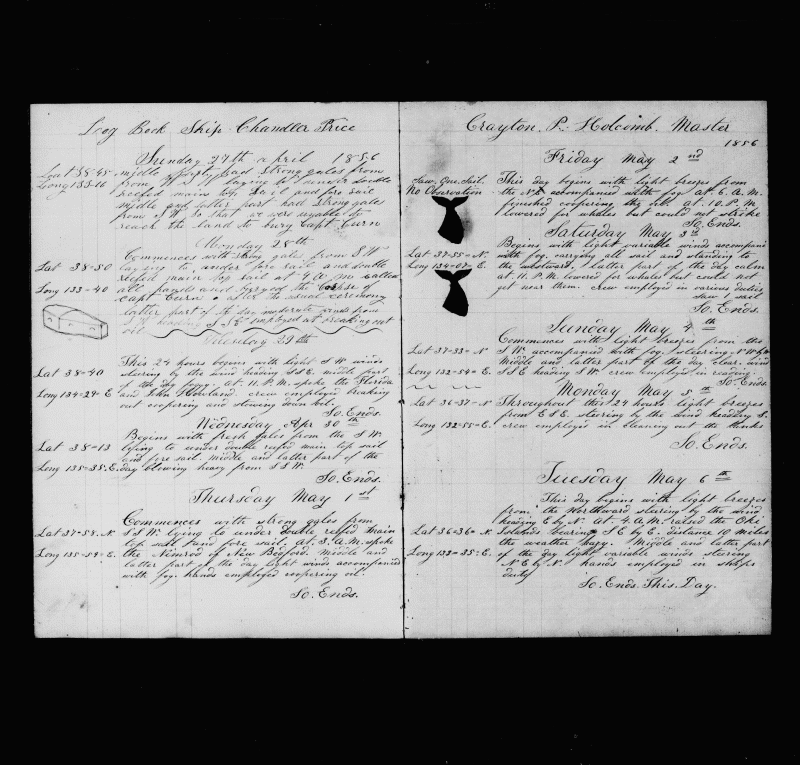 Log Book Ship Chandler Price
Sunday 27th April 1856
Lat 38-45 middle part had strong gales from
Long 133-16 from W S W laying to under double
reefed main top sail and fore sail
middle and latter part had strong gales
from S W so that we were unable to
reach the land to bury Capt Curn
Monday 28th
Commences with strong gales from S W
Lat 38-50 laying to under fore sail and double
reefed main top sail at 9 A.M. called
Long 133-40 all hands and buryed the Corpse of
Capt Curn after the usual ceremony
latter part of day moderate winds from
heading employed at breaking out
oil
Tuesday 29th
This 24 hours begins with light S W winds
Lat 38-40 steering by the wind heading S S E. middle part
of the day foggy. at 11. P. M. spoke the Florida
Long 134-24 E and John Howland. crew employed breaking
out coopering and stowing down oil.
So. Ends.
Wednesday Apr 30th
Begins with fresh gales from the S W.
Lat 38-13 lying to under double reefed main top sail
and fore sail. middle and latter part of the
Long 135-35. E. day blowing heavy from S S W.
So. Ends.
Thursday May 1st
Commences with strong gales from
Lat 37-58. N. S S W. lying to under double reefed main
top sail and fore sail. at 3. A. M. spoke
Long 135-59. E. the Nimrod of New Bedford. Middle and
latter part of the day light winds accompanied
with fog. hands employed coopering oil.
So. Ends.
Crayton. P. Holcomb. Master
1856
Friday May 2nd
Saw One Sail. This day begins with light breezes from
No Observation the N.E accompanied with fog. at 6. A. M.
finished coopering the oil. at. 10. P. M.
lowered for whales but could not strike
So. Ends.
Saturday May 3d
Begins with light variable winds accompani
Lat 37-55-N. with fog. carrying all sail and standing to
Long 134-07-E. the westward. latter part of the day calm
at. 11. P. M. lowered for whales but could not
get near them. crew employed in various duties
saw 1 sail
So. Ends.
Sunday May 4th
Commences with light breezes from the
Lat 37-33-N S W. accompanied with fog. steering N W by W
Middle and latter part of the day clear. wind
Long 132-54-E. S S E heading S W. crew employed in reading.
So. Ends.
Monday May 5th
Lat 36-37-N Throughout this 24 hours light breezes
from E S E. steering by the wind heading S.
Long 132-55-E. crew employed in cleaning out the tanks
So. Ends.
Tuesday May 6th
This day begins with light breezes
from the Northward steering by the wind
heading E by N. At. 4. A. M. raised the Oki
Lat 36-36-N. Islands bearing S E by E. distance 10 miles
the weather hazy. Middle and latter part
Long 133-35-E. of the day light variable winds steering
N E by N. hands employed in ships
duty
So. Ends. This. Day.